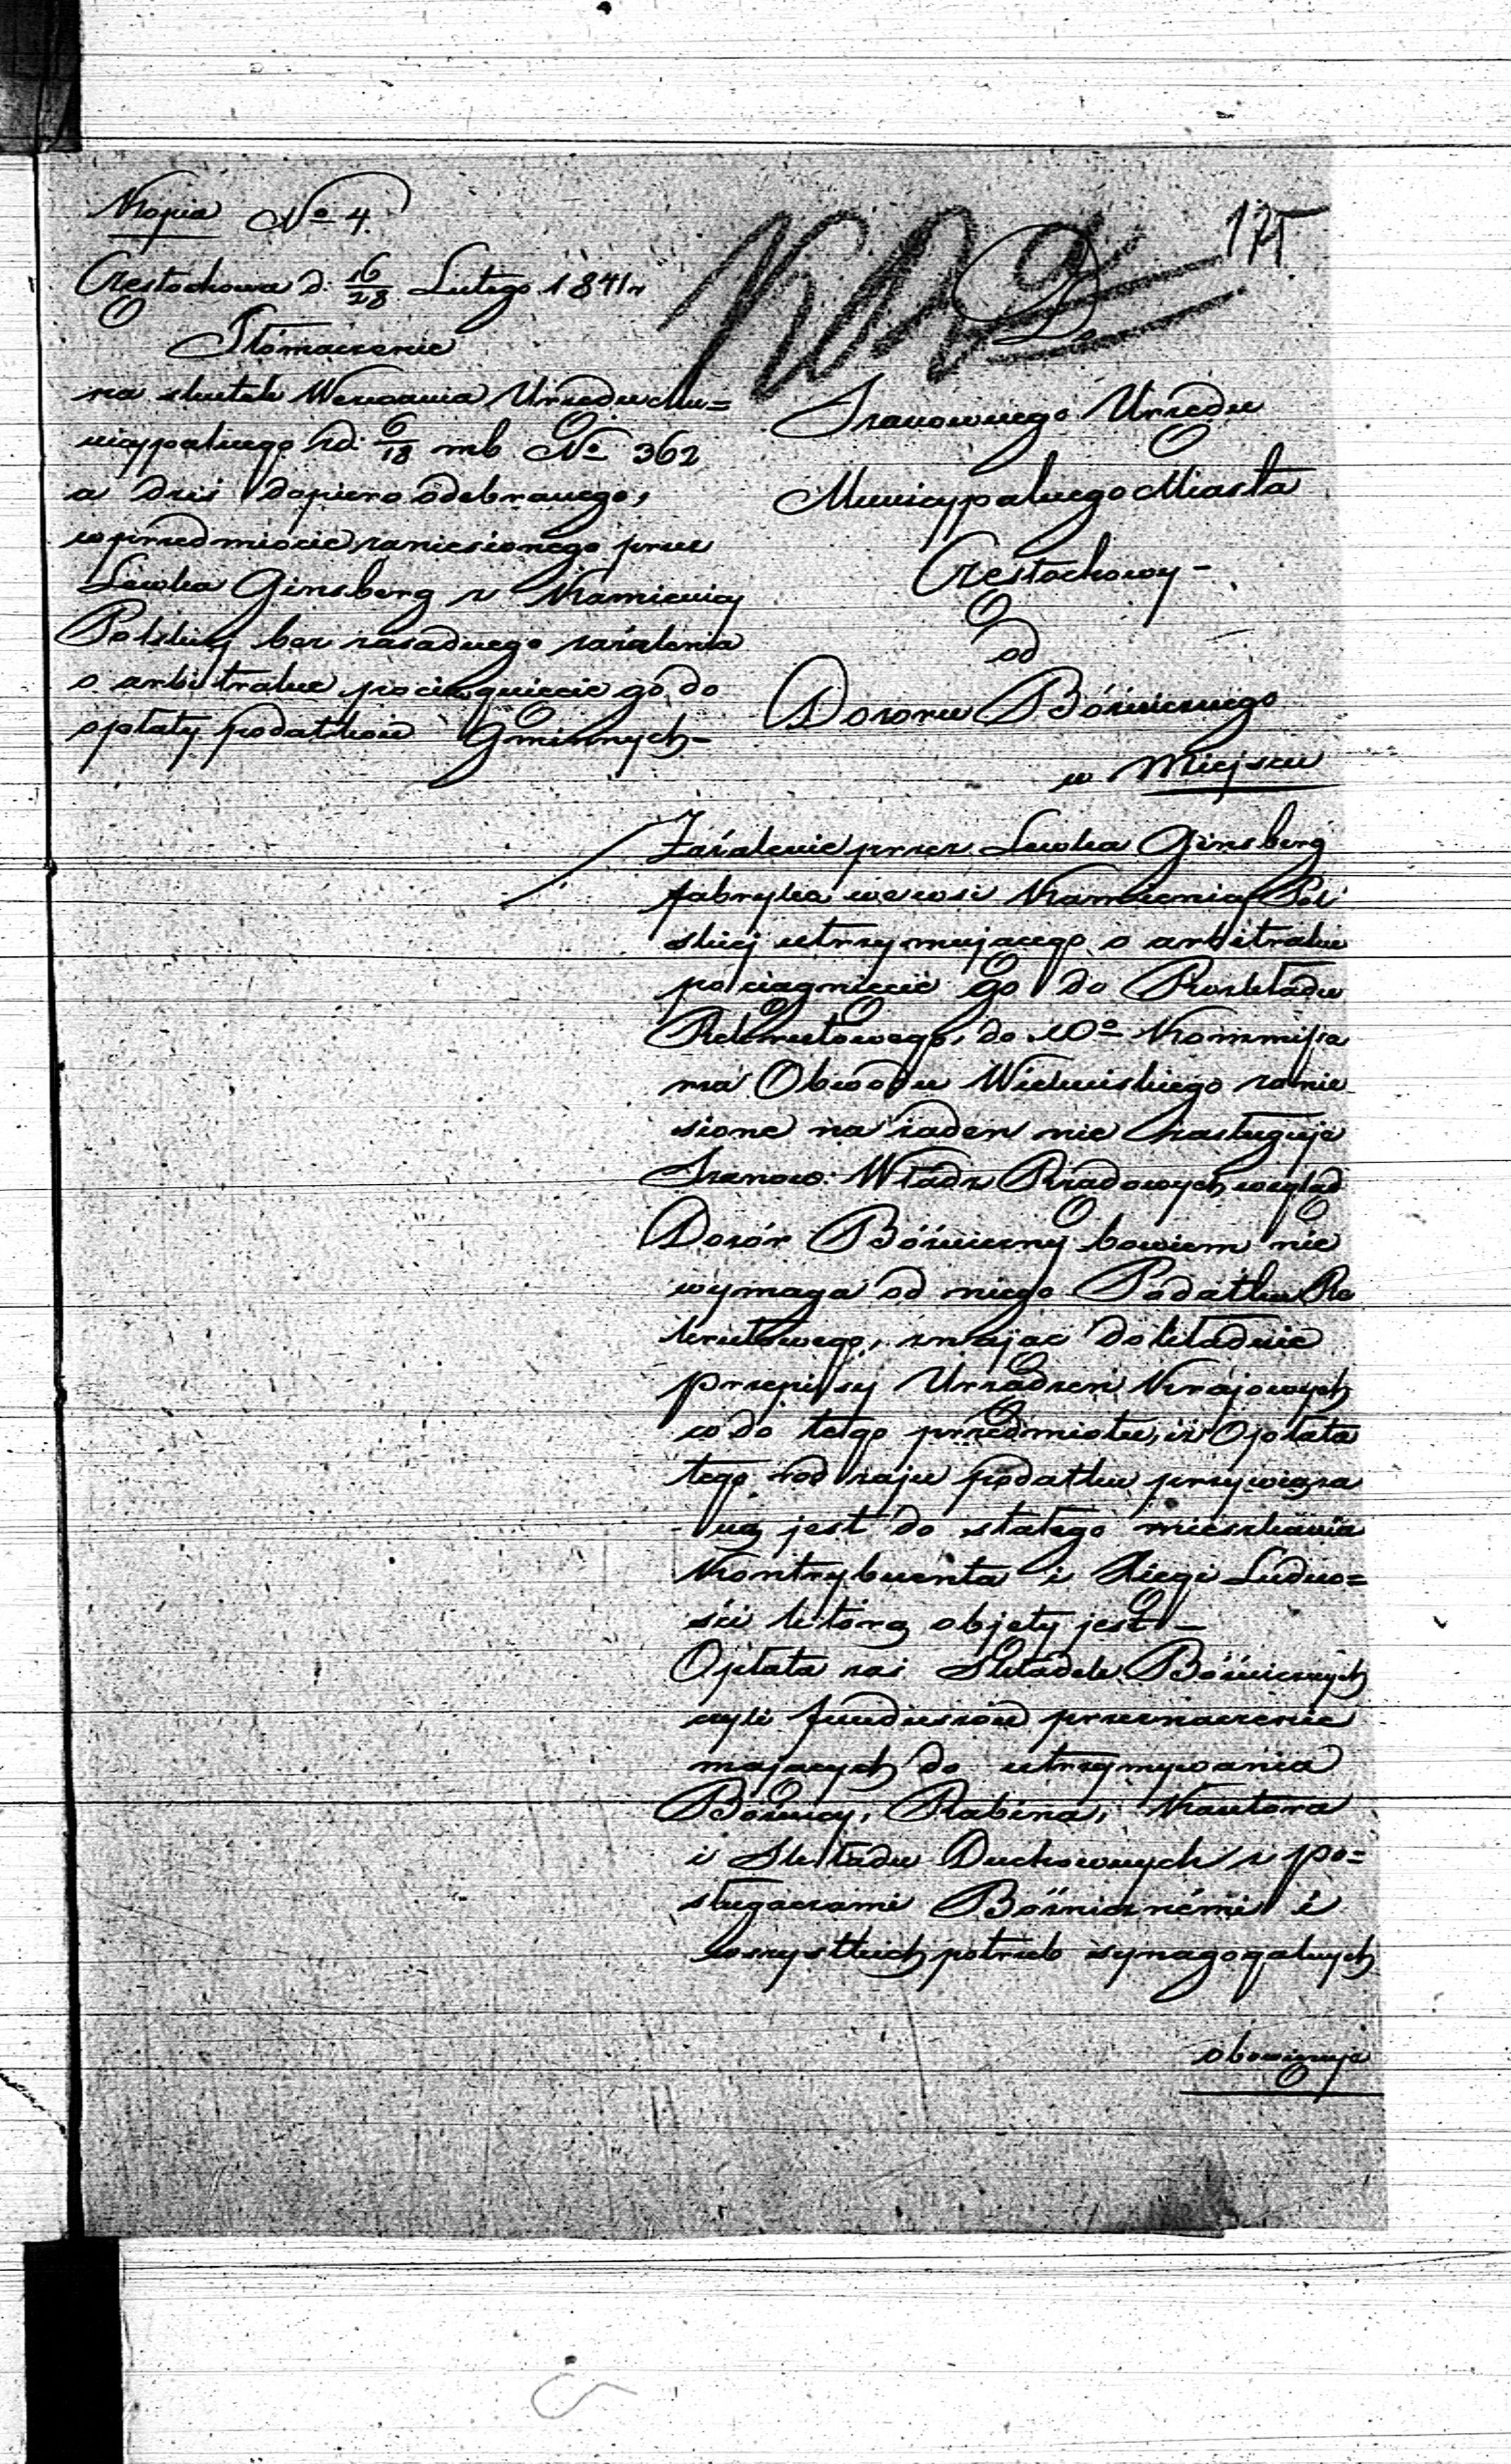 Kopia No 4.
Częstochowa d. 16/28 Lutego 1841 r
Tłómaczenie
na skutek Wezwania Urzędu Mu=
nicypalnego z d. 6/18 mb No 362
a dziś dopiero odebranego,
w przedmiocie zaniesionego przez
Lewka Ginsberg z Kamienicy
Polskiej bez zasadnego zażalenia
o arbitralne pociągnięcie go do
opłaty podatków Gminnych –
175
Szanownego Urzędu
Municypalnego Miasta
Częstochowy –
od
Dozoru Bóżniczego
w Miejscu
Zażalenie przez Lewka Ginsberg
fabrykę we wsi Kamienicy Pol
skiej utrzymującego o arbitralne
pociągnięcie go do Rozkładu
Rekrutowego, do Wo Kommissa
rza Obwodu Wieluńskiego zanie
sione na żaden nie zasługuje
Szanow: Władz Rządowych wzgląd
Dozór Bóżniczny bowiem nie
wymaga od niego Podatku Re
krutowego, znając dokładnie
przepisy Urządzeń Krajowych
co do tego przedmiotu, iż Opłata
tego rodzaju podatku przywiąza
ną jest do stałego mieszkania
Kontrybuenta i Xięgi Ludno=
ści którą objęty jest –
Opłata zaś Składek Bóżnicznych
czyli funduszów przeznaczenie
mających do utrzymywania
Bóżnicy, Rabina, Kantora
i Składu Duchownych z po=
sługaczami Bóżnicznémi i
wszystkich potrzeb synagogalnych
obowiązuje